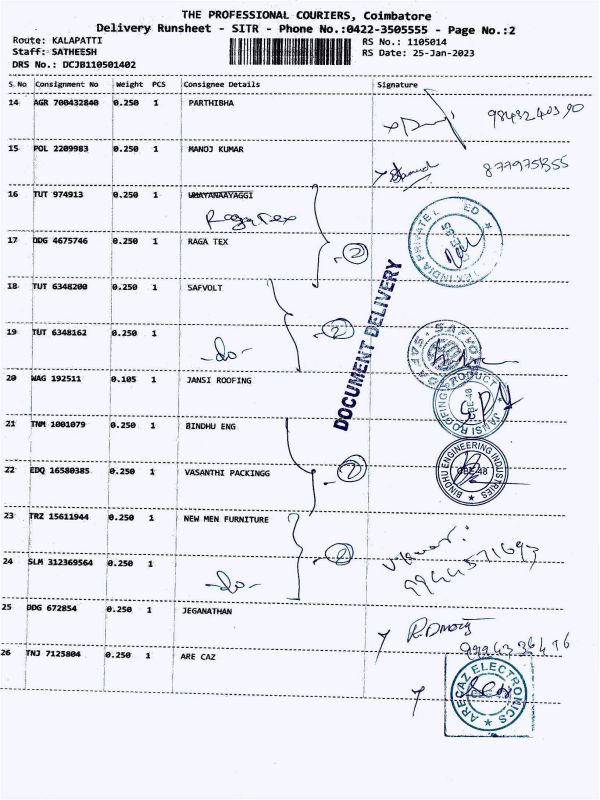 THE PROFESSIONAL COURIERS, Coimbatore
Delivery Runsheet - SITR - Phone No.:0422-3505555 - Page No.:2
Route: KALAPATTI
Staff: SATHEESH
DRS No.: DCJB110501402
RS No.: 1105014
RS Date: 25-Jan-2023
S.No Consignment No Weight PCS Consignee Details Signature
14 AGR 700432840 0.250 1 PARTHIBHA
15 POL 2209983 0.250 1 MANOJ KUMAR
16 TUT 974913 0.250 1
Raga Tex
17 DDG 4675746 0.250 1 RAGA TEX 2
18 TUT 6348200 0.250 1 SAFVOLT
19 TUT 6348162 0.250 1 2
-do-
20 WAG 192511 0.105 1 JANSI ROOFING
DOCUMENT DELIVERY
JANSI ROOFING PRODUCT
21 TNM 1001079 0.250 1 BINDHU ENG
22 EDQ 16580385 0.250 1 VASANTHI PACKINGG
BINDHU ENGINEERING INDUSTRIES
CBE-48
23 TRZ 15611944 0.250 1 NEW MEN FURNITURE
24 SLM 312369564 0.250 1
-do-
9944571693
25 DDG 672854 0.250 1 JEGANATHAN
26 TNJ 7125804 0.250 1 ARE CAZ
ARECAZ ELECTRONICS